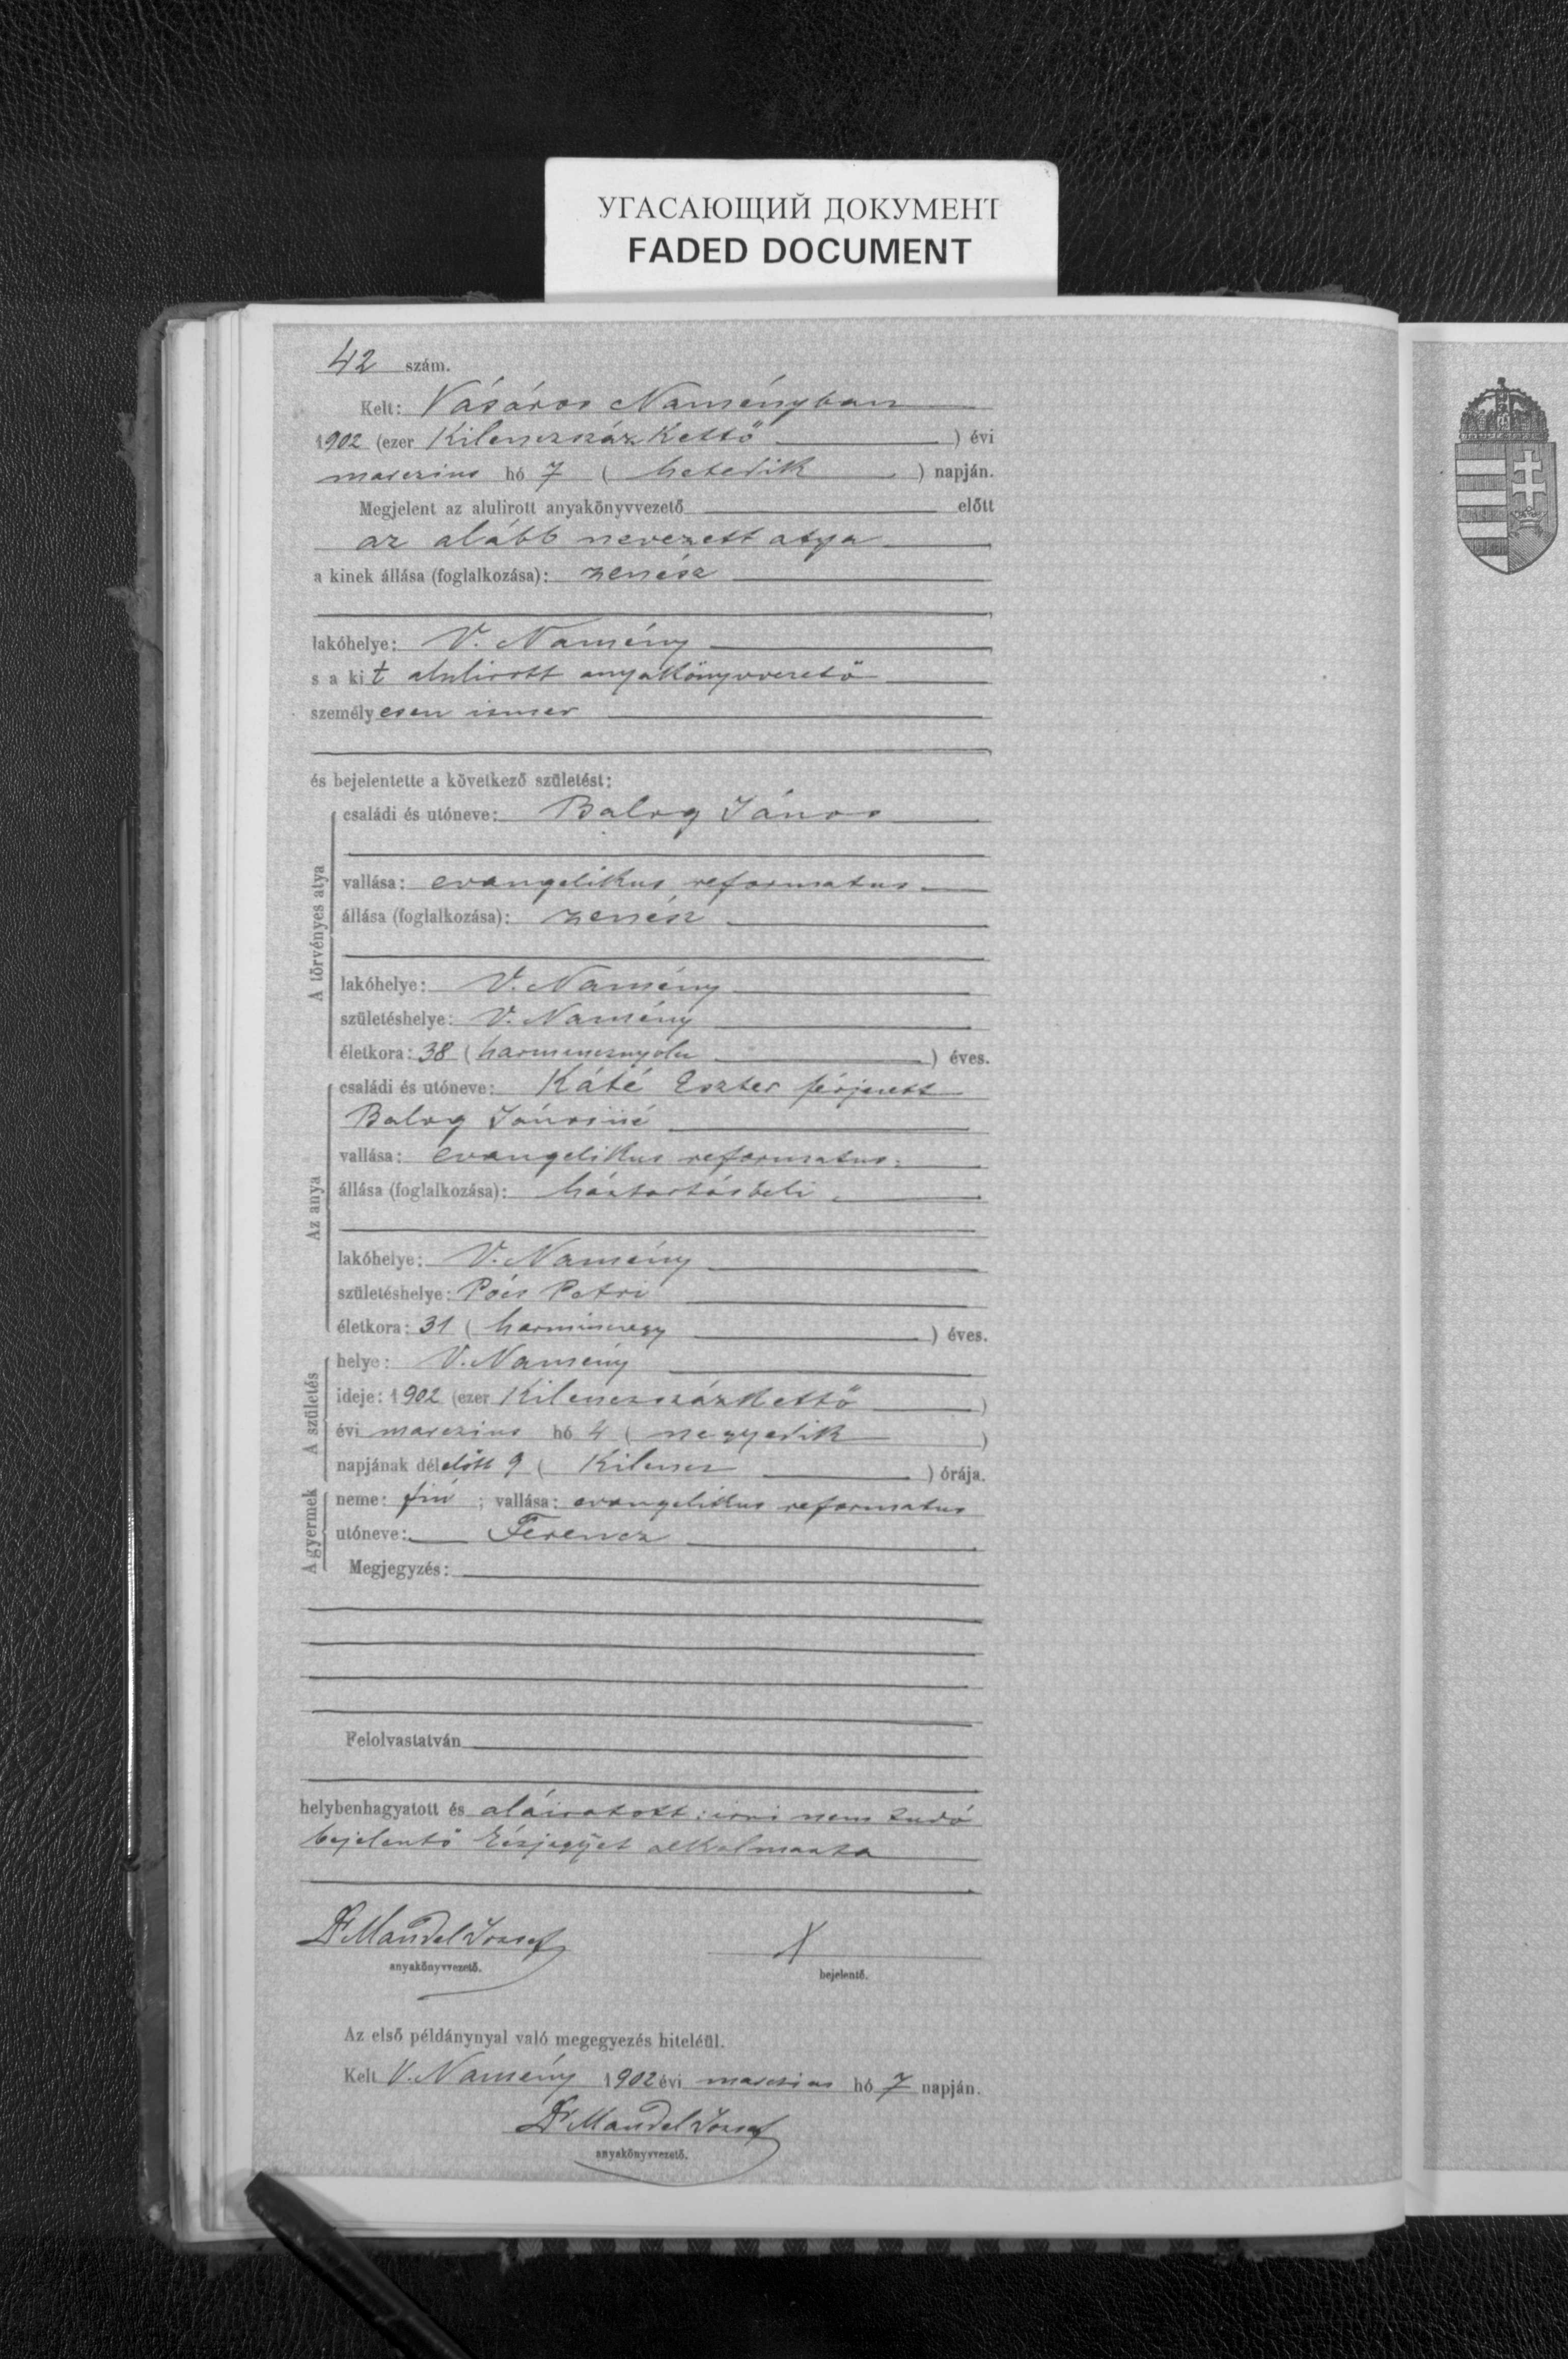 УГАСАЮЩИЙ ДОКУМЕНТ
FADED DOCUMENT
42 szám.
Kelt: Vásáros Naményban
1902 (ezer Kilenczszáz Kettő ) évi
marczius hó 7 ( hetedik ) napján.
Megjelent az alulirott anyakönyvvezető előtt
az alább nevezett atya
a kinek állása (foglalkozása): zenész
lakóhelye: V. Namény
s a kit alulirott anyakönyvvezető
személyesen ismer
és bejelentette a következő születést:
A törvényes atya
családi és utóneve: Balog János
vallása: evangelikus reformatus
állása (foglalkozása): zenész
lakóhelye: V. Namény
születéshelye: V. Namény
életkora: 38 ( harmincznyolcz ) éves.
Az anya
családi és utóneve: Káté Eszter férjezett
Balog Jánosné
vallása: evangelikus reformatus
állása (foglalkozása): háztartásbeli
lakóhelye: V. Namény
születéshelye: Pócs Petri
életkora: 31 ( harminczegy ) éves.
A születés
helye: V. Namény
ideje: 1902 (ezer KilenczszázKettő )
évi marczius hó 4 ( negyedik )
napjának délelőtt 9 ( Kilencz ) órája.
A gyermek
neme: fiú ; vallása: evangelikus reformatus
utóneve: Ferencz
Megjegyzés:
Felolvastatván
helybenhagyatott és aláiratott: irni nem tudó
bejelentő kézjegyét alkalmazta
Dr Mandel József
anyakönyvvezető.
X
bejelentő.
Az első példánynyal való megegyezés hiteléül.
Kelt V. Namény 1902 évi marczius hó 7 napján.
Dr Mandel József
anyakönyvvezető.